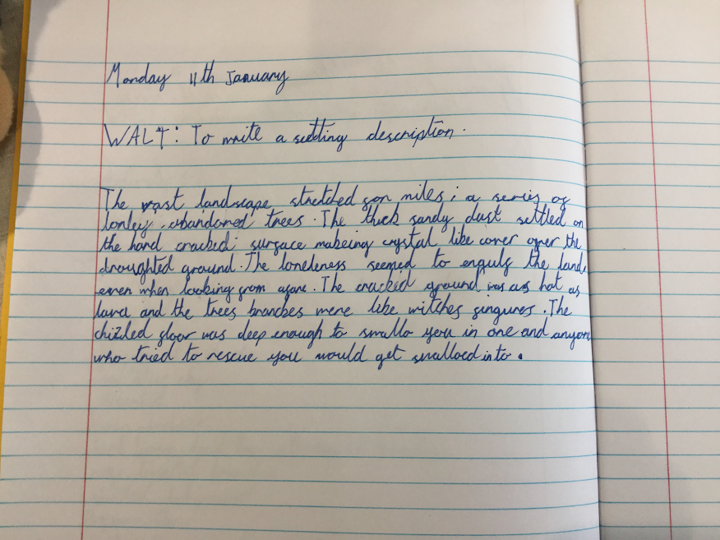 Monday 11th January
WALT: To write a setting description.
The vast landscape stretched for miles; a series of
lonley, abandoned trees. The thick sandy dust settled on
the hard cracked; surface makeing crystal like cover over the
droughted ground. The loneleness seemed to enguls the land,
even when looking from afare. The cracked ground was as hot as
lava and the trees branches were like witches fingures. The
chizzled floor was deep enough to swallo you in one and anyone
who tried to rescue you would get swallocd into.